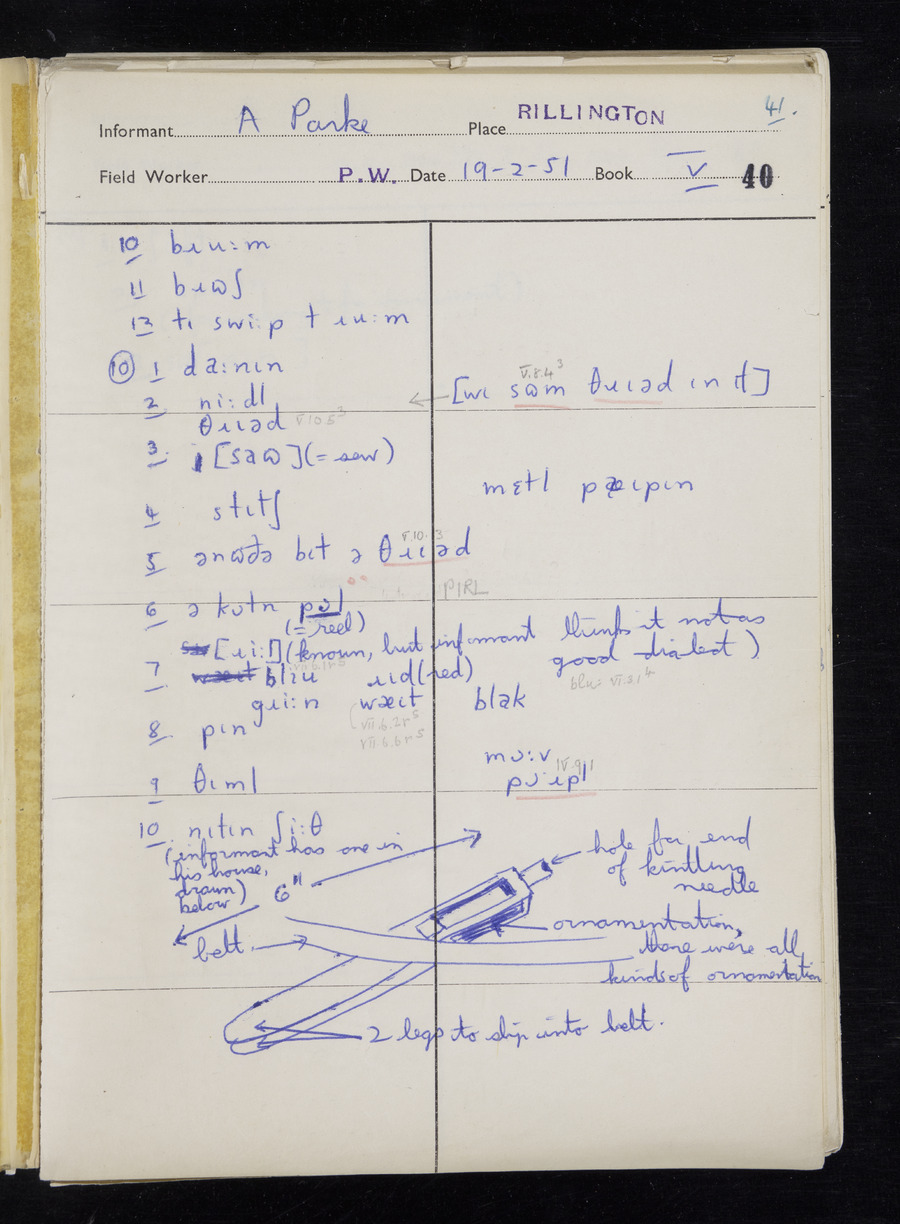 41.
Informant A Parke Place RILLINGTON
Field Worker P.W. Date 19-2-51 Book V 40
10 bɹuːm
11 bɹʊʃ
13 tɪ swiːp t ɹuːm
10 1 daːnɪn
2 niːdl
← [wɪ sʊm θɹɪəd ɪn ɪt]
V.8.4³
θɹɪəd V 10 5³
3 [saʊ] (= sew)
4 stɪtʃ
mɛtl
5 ənʊðə bɪt ə θɹɪəd
V.10.13
6 ə kɒtn
PIRL
(= reel)
[ɹiːl] (known, but informant thinks it not as
good dialect)
7 blɪu ɹɪd (red)
gɹiːn wæɪt blak
bluː VI.3.1⁴
VII.6.2r⁵
VII.6.6r⁵
8. pɪn
9 θɪml
10 nɪtɪn ʃiːθ
(informant has one in
his house,
drawn
below)
6"
hole for end
of knitting
needle
ornamentation,
there were all
kinds of ornamentation
belt.
2 legs to slip into belt.